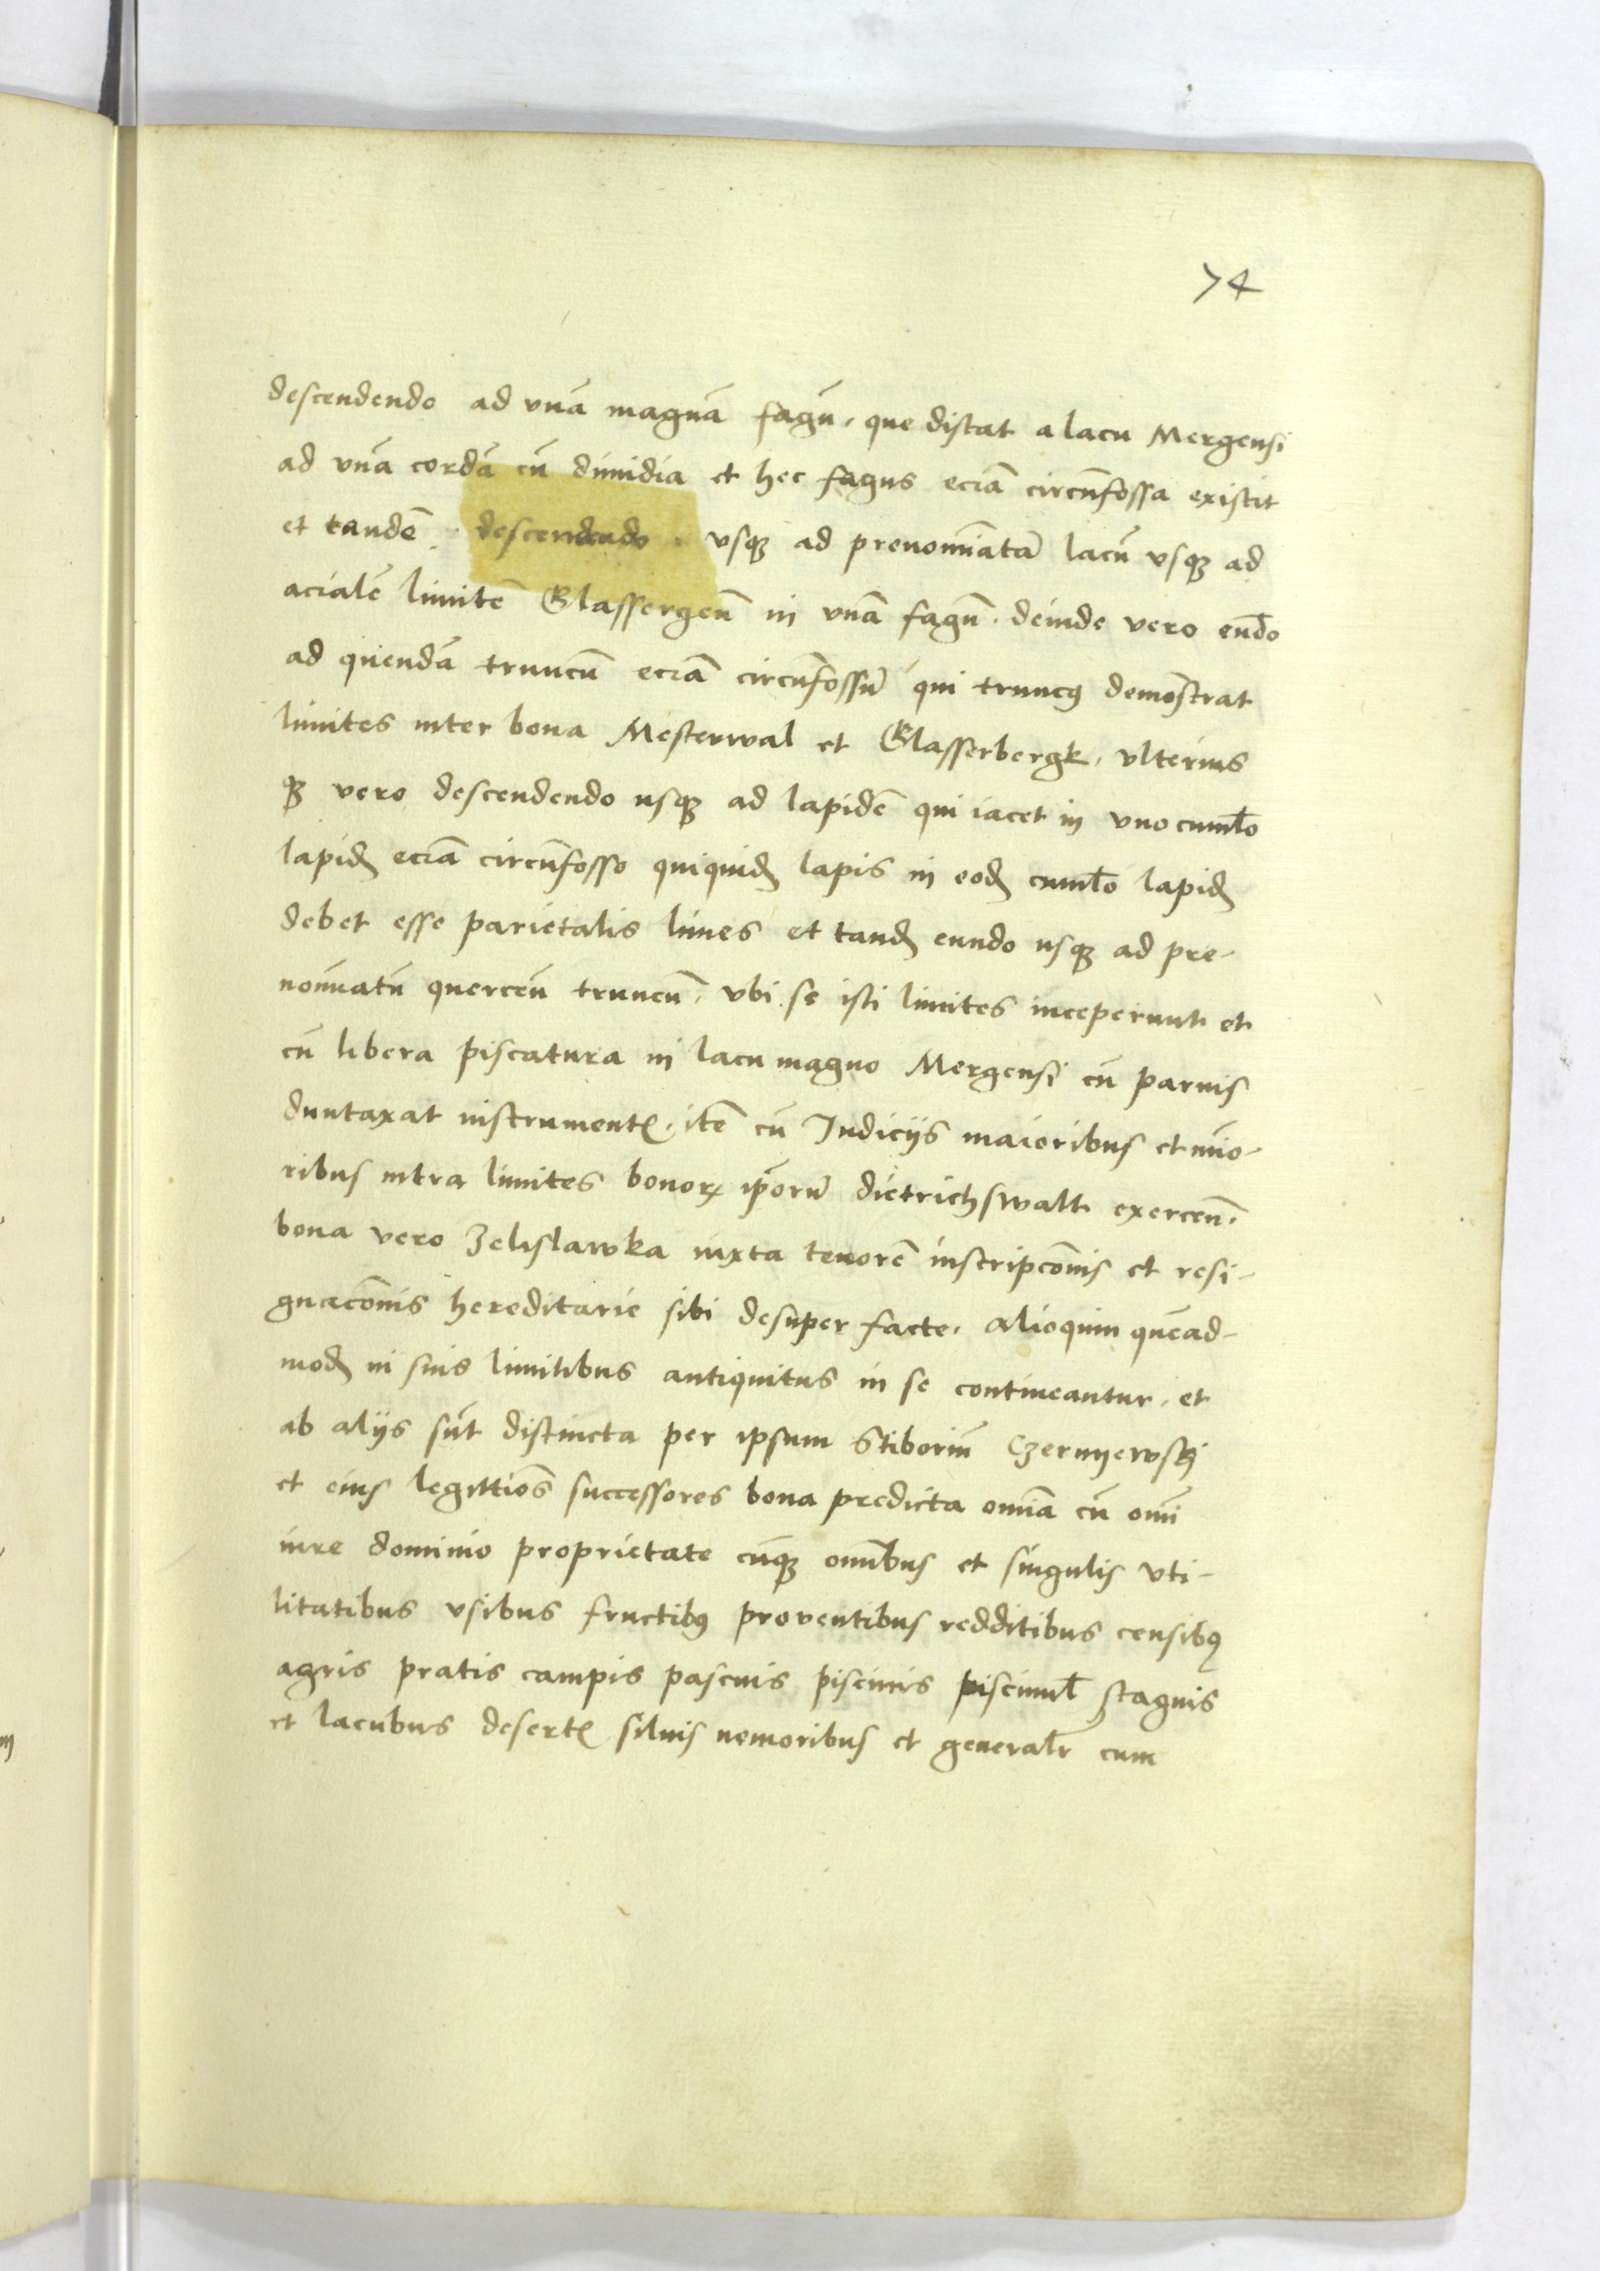 74
descendendo ad vnā magnā fagū, que distat a lacu Mergensi
ad vnā cordā cū dimidia et hec fagus eciā circūfossa existit
et tandē descendendo vsqꝫ ad prenomiatā lacū vsqꝫ ad
acialē limitē Glassergenn̄ in vnā fagū. deinde vero eūdo
ad quendā truncū eciā circūfossū qui truncꝰ demōstrat
limites inter bona Mesterwal et Glasserbergk, vlterius
qꝫ vero descendendo usqꝫ ad lapidē qui iacet in vno cumlo
lapidꝫ eciā circūfosso quiquidꝫ lapis in eodꝫ cumlo lapidꝫ
debet esse parietalis limes et tandꝫ eundo usqꝫ ad pre-
nōīatū querceū truncū, vbi se isti limites inceperunt et
cū libera piscatura in lacu magno Mergensi cū paruis
duntaxat instrumentꝭ. itē cū Judicijs maioribus et mīo-
ribus intra limites bonoꝝ ip̄orū dietrichswalt exercen̄.
bona vero Zelislawka iuxta tenorē inscripcōnis et resi-
gnacōnis hereditarie sibi desuper facte, alioquin quēad-
modꝫ in suis limitibus antiquitus in se contineantur, et
ab alijs sūt distincta per ipsum Stiboriū Czernyewskj
et eius legittīos successores bona predicta omīa cū omī
iure dominio proprietate cūqꝫ omībus et singulis vti-
litatibus vsibus fructibꝰ prouentibus redditibus censibꝰ
agris pratis campis pascuis piscinis piscinul̄ stagnis
et lacubus desertꝭ siluis nemoribus et general̄r cum